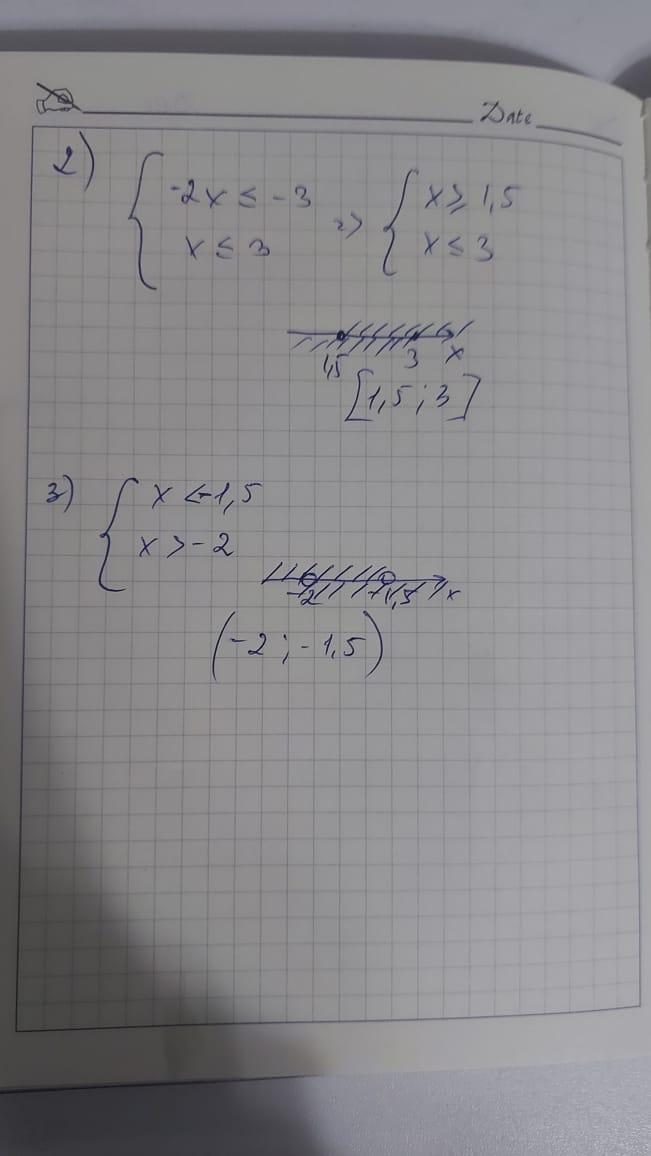 Date
2) { -2x ≤ -3 => { x ≥ 1,5
x ≤ 3 x ≤ 3
1,5 3 x
[1,5 ; 3]
3) { x < -1,5
x > -2
-2 -1,5 x
(-2 ; -1,5)